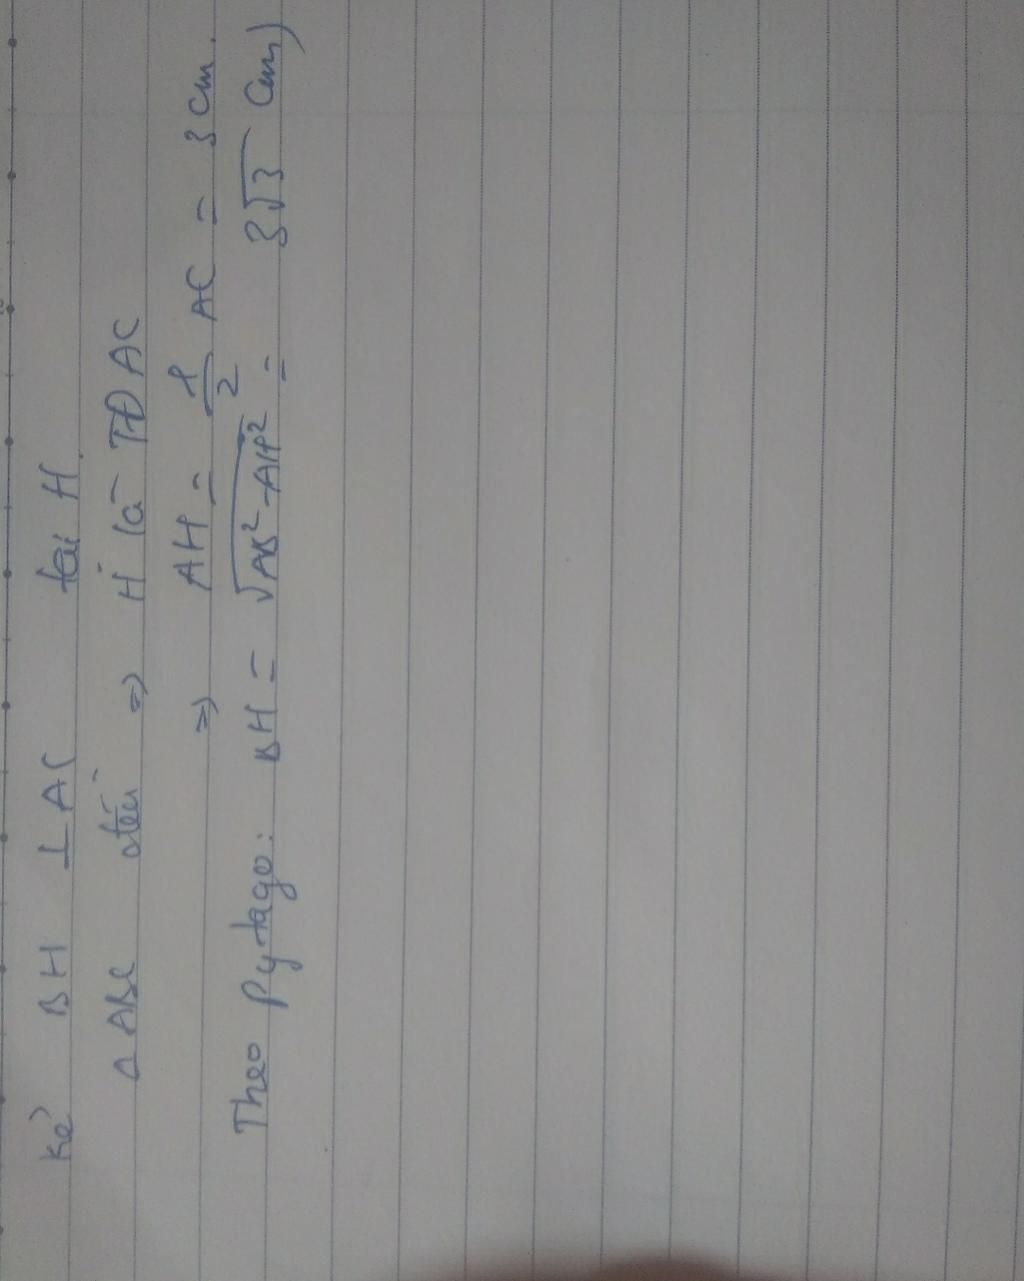 Kẻ BH ⊥ AC tại H.
Δ ABC đều ⇒ H là TĐ AC
⇒ AH = 1/2 AC = 3 cm.
Theo Pytago: BH = √(AB² - AH²) = 3√3 cm)